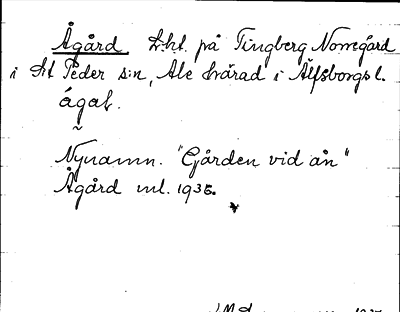 Ågård lht. på Tingberg Norregård
i St Peder s:n, Ale härad i Älfsborgs l.
ågaḷ.
~
Nynamn. "Gården vid ån"
Ågård ml. 1935.